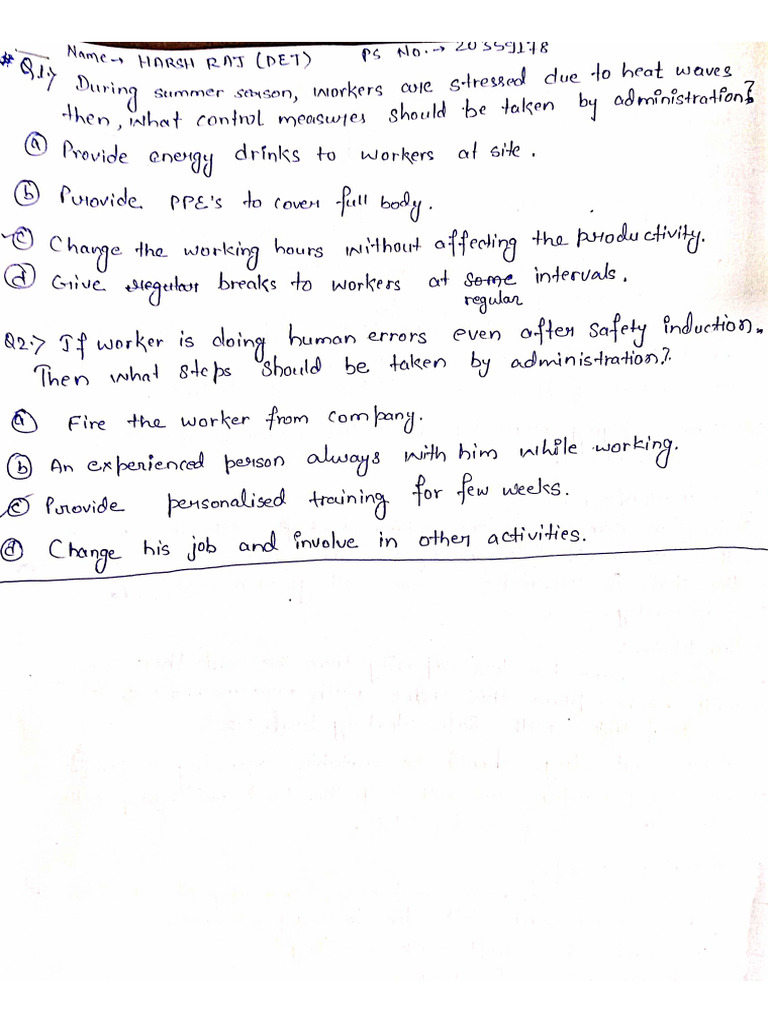 Name → HARSH RAJ (DET) PS No. → 20359178
# Q1.> During summer season, workers are stressed due to heat waves
then, what control measures should be taken by administration?
(a) Provide energy drinks to workers at site.
(b) Provide PPE's to cover full body.
(c) Change the working hours without affecting the productivity.
(d) Give regular breaks to workers at some intervals.
regular
Q2.> If worker is doing human errors even after safety induction.
Then what steps should be taken by administration?
(a) Fire the worker from company.
(b) An experienced person always with him while working.
(c) Provide personalised training for few weeks.
(d) Change his job and involve in other activities.